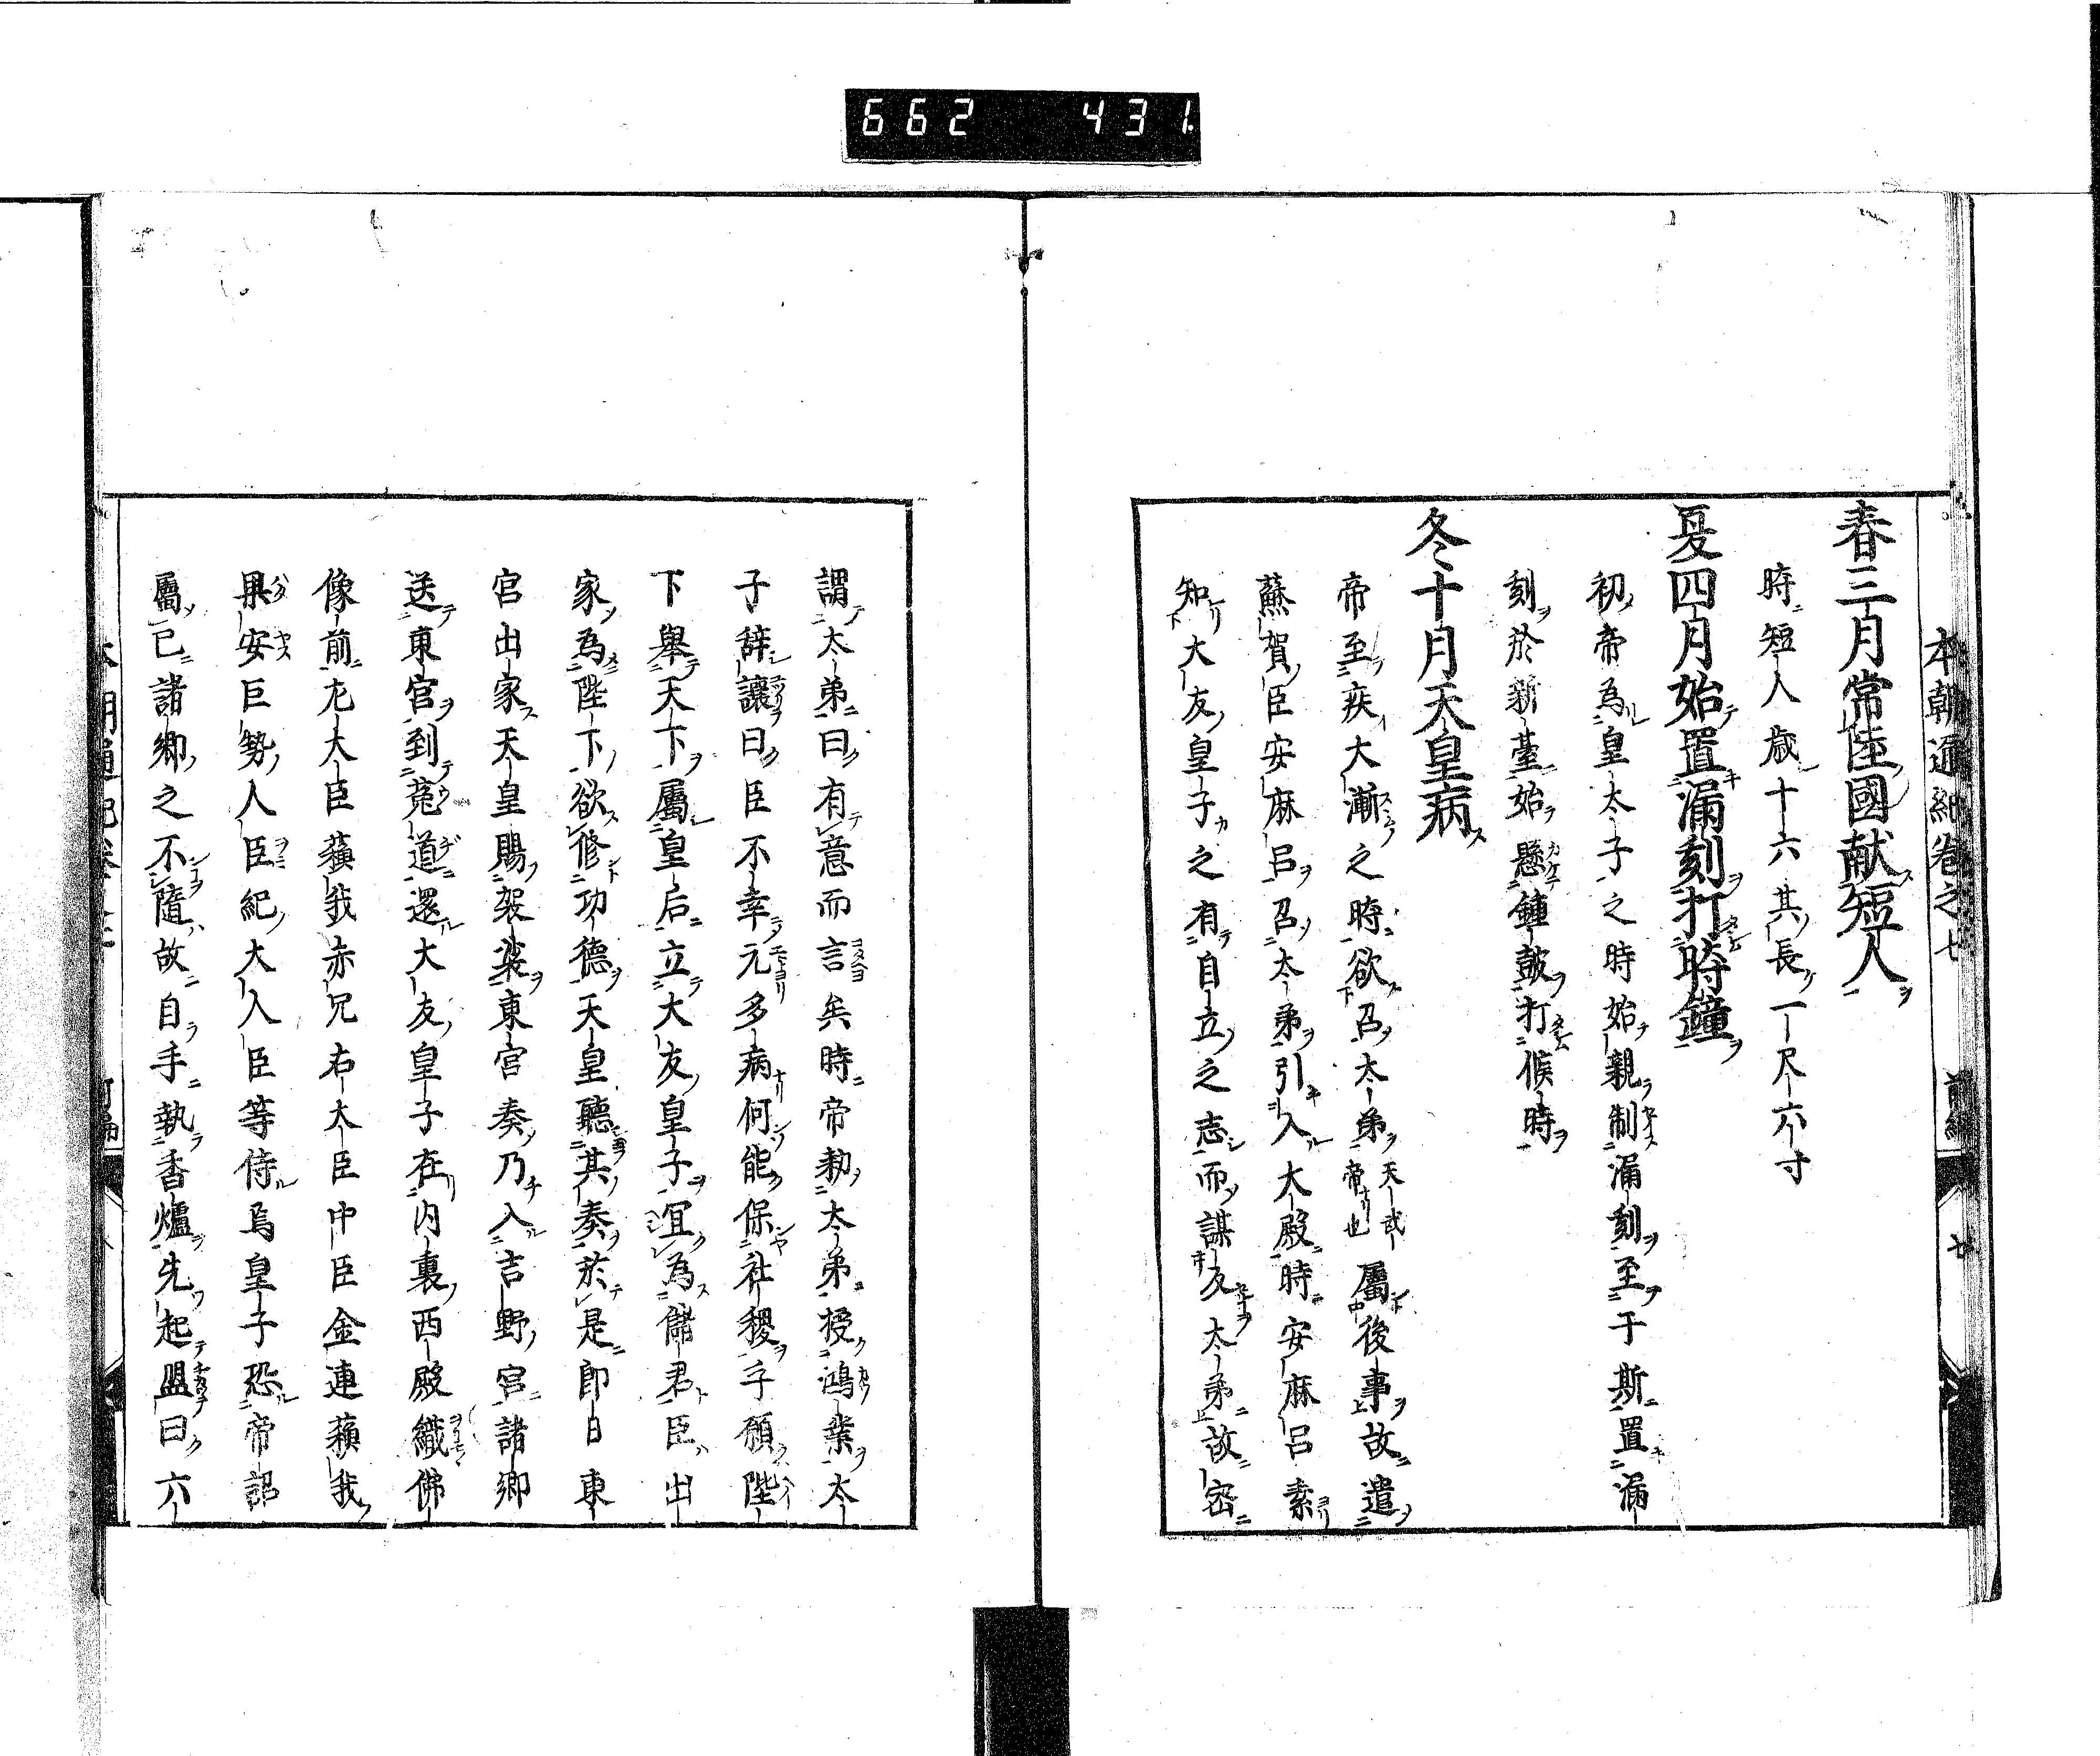 662 431.
本朝通紀卷之七 前編 七
春三月常陸國献短人
時短人歳十六其長一尺六寸
夏四月始置漏刻打時鐘
初帝為皇太子之時始親制漏刻至于斯置漏
刻於新臺始懸鍾鼓打候時
冬十月天皇病
帝至疾大漸之時欲召太弟天武帝也屬後事故遣
蘇賀臣安麻呂召太弟引入大殿時安麻呂素
知大友皇子之有自立之志而謀反太弟故密
謂太弟曰有意而言矣時帝勅太弟授鴻業太
子辞讓曰臣不幸元多病何能保社稷乎願陛
下舉天下屬皇后立大友皇子冝為儲君臣出
家為陛下欲修功德天皇聽其奏於是即日東
宮出家天皇賜袈裟東宮奏乃入吉野宮諸卿
送東宮到菟道還大友皇子在内裏西殿織佛
像前尢大臣蘓我赤兄右大臣中臣金連蘓我
果安巨勢人臣紀大人臣等侍焉皇子恐帝詔
屬已諸卿之不隨故自手執香爐先起盟曰六